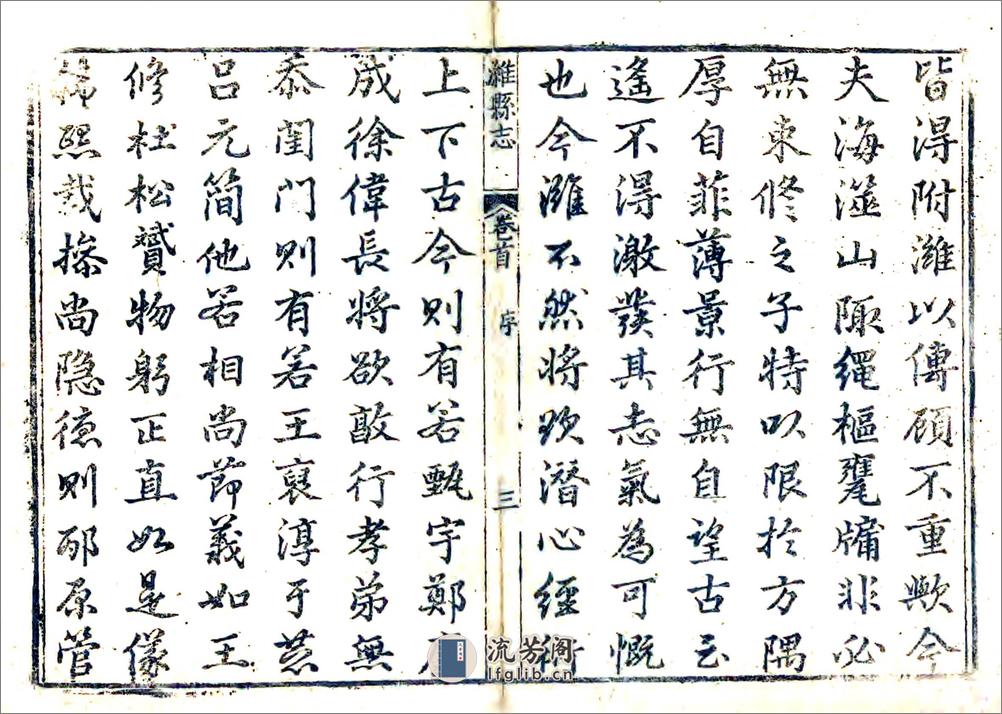 皆得附濰以傳顧不重歟今
夫海澨山陬繩樞甕牖非必
無束修之子特以限於方隅
厚自菲薄景行無自望古云
遙不得激發其志氣為可慨
也今濰不然將欲潛心經術
濰縣志 卷首 序 三
上下古今則有若甄宇鄭
成徐偉長將欲敦行孝弟無
忝閨門則有若王裒淳于恭
呂元簡他若相尚節義如王
修杜松贇物躬正直如是儀
熙載操尚隐德則邴原管
流芳阁
lfglib.cn